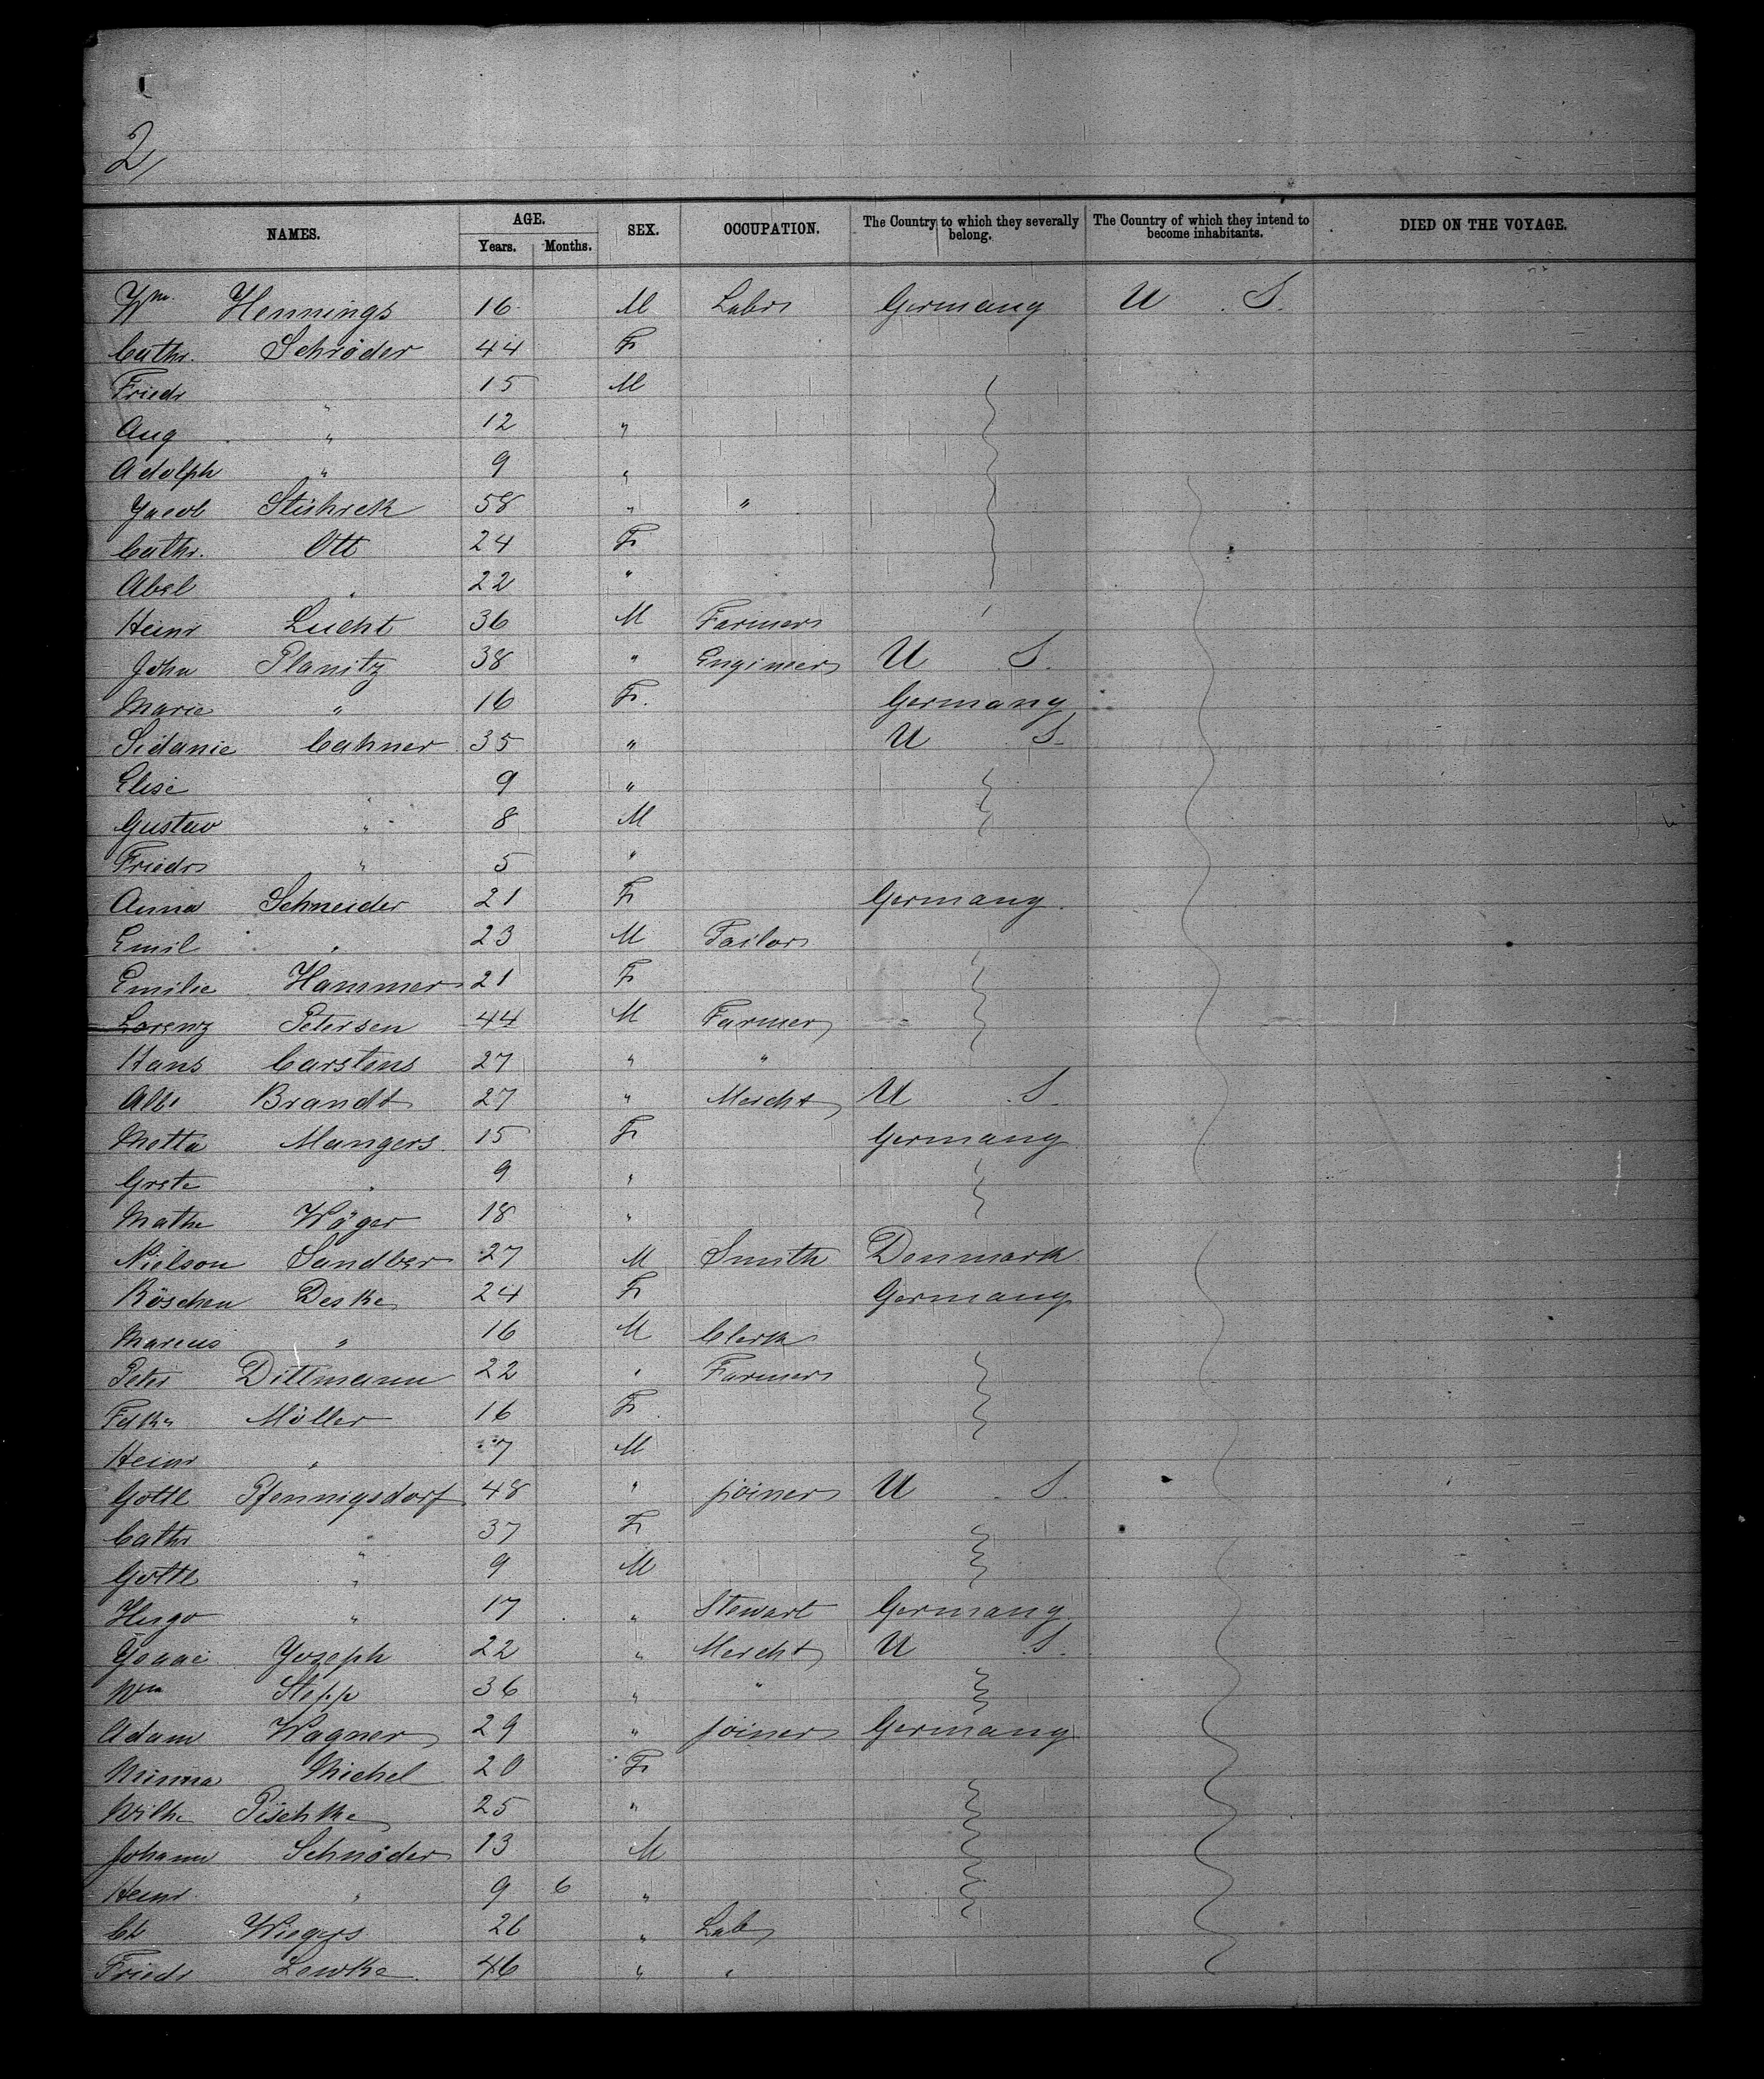 2
NAMES. AGE. SEX. OCCUPATION. The Country to which they severally belong. The Country of which they intend to become inhabitants. DIED ON THE VOYAGE.
Years. Months.
Wm. Hennings 16 M Labr Germany U. S.
Cathr. Schröder 44 F
Friedr " 15 M
Aug " 12 "
Adolph " 9 "
Jacob 58 " "
Cathr. Ott 24 F
Abel " 22 "
Heinr Lucht 36 M Farmer
John Planitz 38 " Engineer U S.
Marie " 16 F. Germany
Sidanie Cahner 35 " U S.
Elise " 9 "
Gustav " 8 M
Friedr " 5 "
Anna Schneider 21 F Germany.
Emil " 23 M Tailor
Emilie Hammer 21 F
Lorenz Petersen 44 M Farmer
Hans Carstens 27 " "
Alb. Brandt 27 " Mercht U S.
Metta Mangers 15 F Germany
Grete " 9 "
Mathe Wöger 18 "
Nielson Sandber 27 M Smith Denmark
Röschen Deske 24 F Germany
Marcus " 16 M Clerk
Peter Dittmann 22 " Farmer
Möller 16 F
Heinr " 7 M
Gottl Pfennigsdorf 48 " joiner U. S.
Cathr " 37 F
Gottl " 9 M
Hugo " 17 " Stewart Germany
Isaac Joseph 22 " Mercht U S.
Wm Stepp 36 " "
Adam Wagner 29 " joiner Germany
Minna Michel 20 F
Wilhe Pischke 25 "
Johann Schnöder 13 M
Heinr " 9 6 "
Ch Wiegys 26 " Lab
Friedr Lewke 46 " "